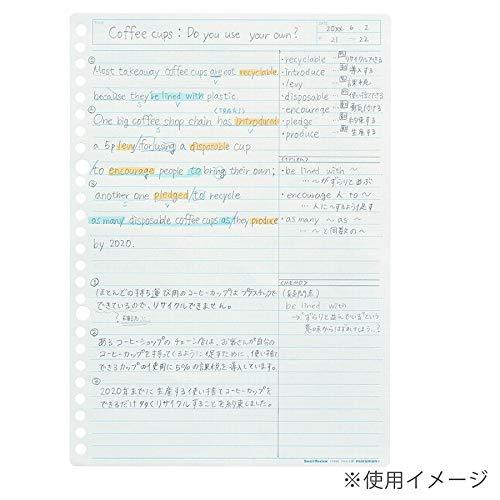 TITLE
Coffee cups : Do you use your own?
DATE
20xx . 6 . 2
21 — 22
① Most takeaway coffee cups are not recyclable
because they be lined with plastic.
② One big coffee shop chain has introduced
a 5p levy/for/using a disposable cup
/to encourage people to bring their own;
③ another one pledged/to recycle
as many disposable coffee cups as/they produce
by 2020.
・recyclable … リサイクルできる
・introduce … 導入する
・levy … 課税
・disposable … 使い捨てできる
・encourage … 勇気づける
・pledge … 約束する
・produce … 生産する
・be lined with ~
… ~がずらりと並ぶ
・encourage 人 to ~
… 人に~するよう促す
・as many ~ as ~
… ~と同数の~
①
ほとんどの持ち運び用のコーヒーカップは プラスチックで
できているので、リサイクルできません。
②
あるコーヒーショップのチェーン店は、お客さんが自分の
コーヒーカップを持ってくるように促すために、使い捨て
できるカップの使用に5%の課税を導入しています。
③
2020年までに生産する使い捨てコーヒーカップを
できるだけ多くリサイクルすることを約束しました。
<MEMO>
(疑問点)
be lined with
→"ずらりと並んでいる"という
意味からはずれてしまう…?
maruman
※使用イメージ